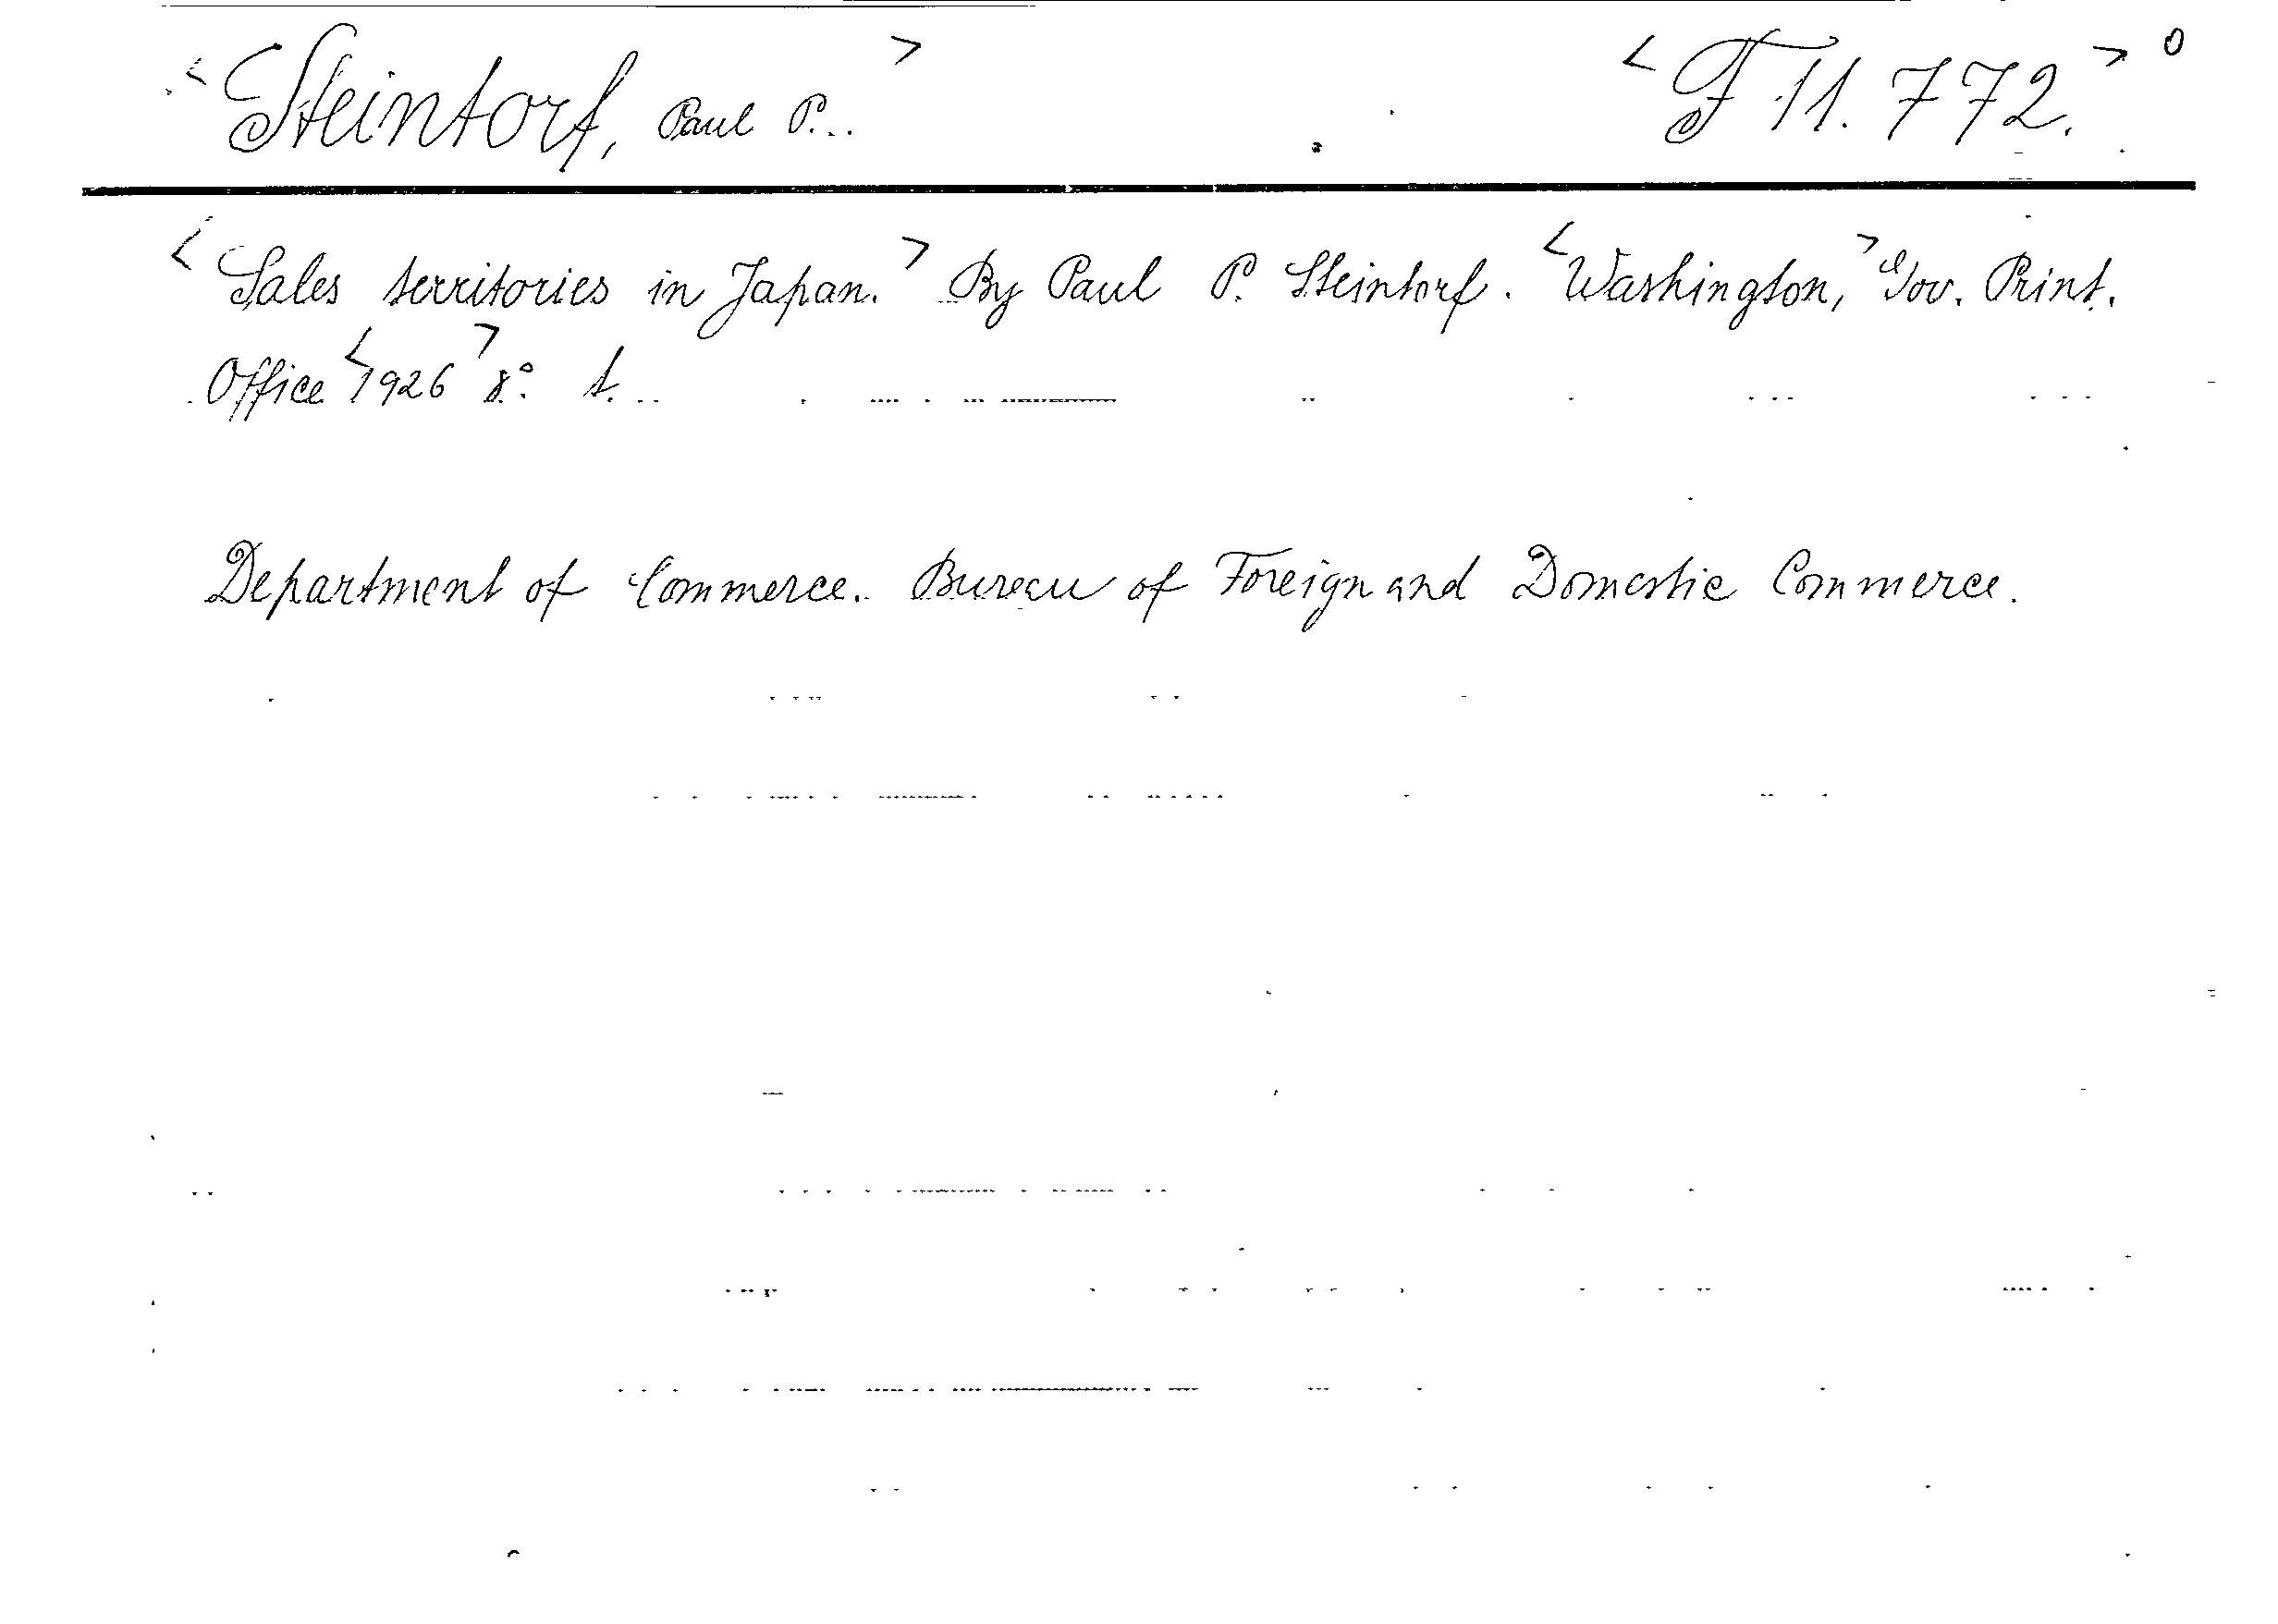 <Steintorf, Paul P..> <F 11.772.> o
<Sales territories in Japan.> By Paul P. Steintorf. <Washington,> Gov. Print.
Office <1926> 8° t.
Department of Commerce. Bureau of Foreign and Domestic Commerce.